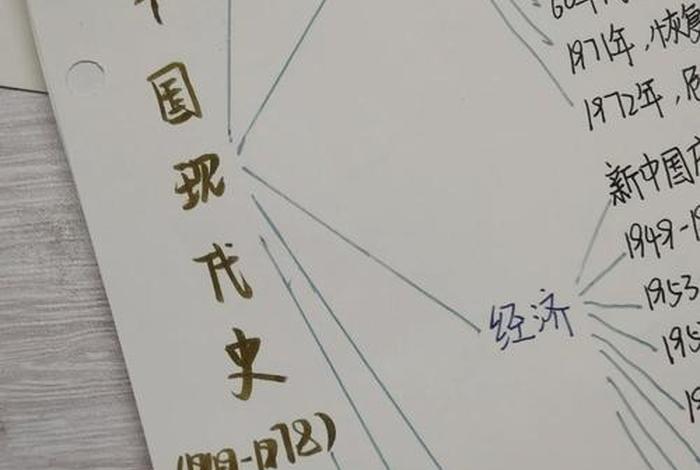 中国现代史
(1949-1978)
1971年，恢复
1972年，尼
经济
新中国成
1949-1
1953
195
19